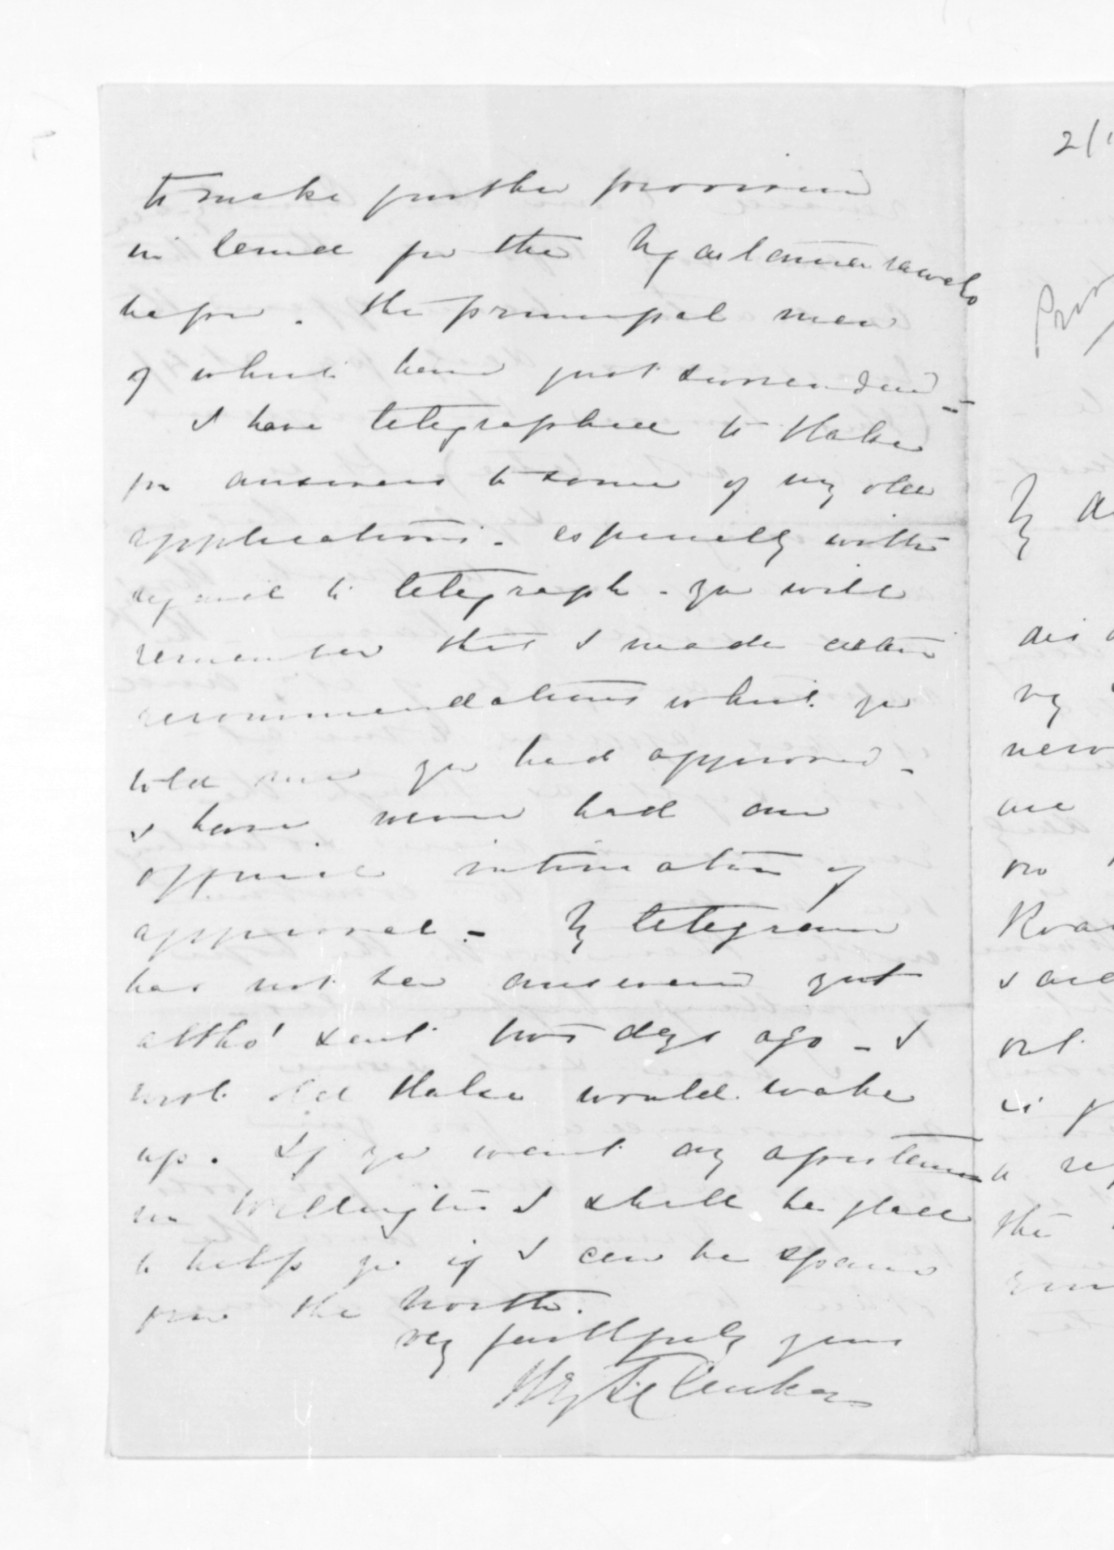 to make further provision
in land for the Ngaitamarawaho
hapu. The principal men
of which have just surrendered_
I have telegraphed to Halse
for answers to some of my old
applications. especially with
regard to telegraph. you will
remember that I made certain
recommendations which you
told me you had approved_
I have never had an
official intimation of
approval_ My telegram
has not been answered yet
altho' sent two days ago _ I
wish old Halse would wake
up. If you want any assistance
in Wellington I shall be glad
to help you if I can be spared
from the North.
Very faithfully yours
HyTClarke
2/
My
are
no
out
is
the